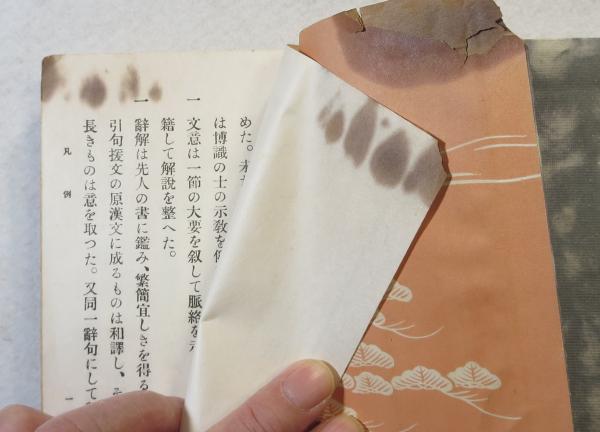 めた。
は博識の士の示教を
一 文意は一節の大要を叙して脈絡を
籍して解説を整へた。
一 辭解は先人の書に鑑み、繁簡宜しきを得る
引句援文の原漢文に成るものは和譯し、そ
長きものは意を取つた。又同一辭句にして
凡例
一